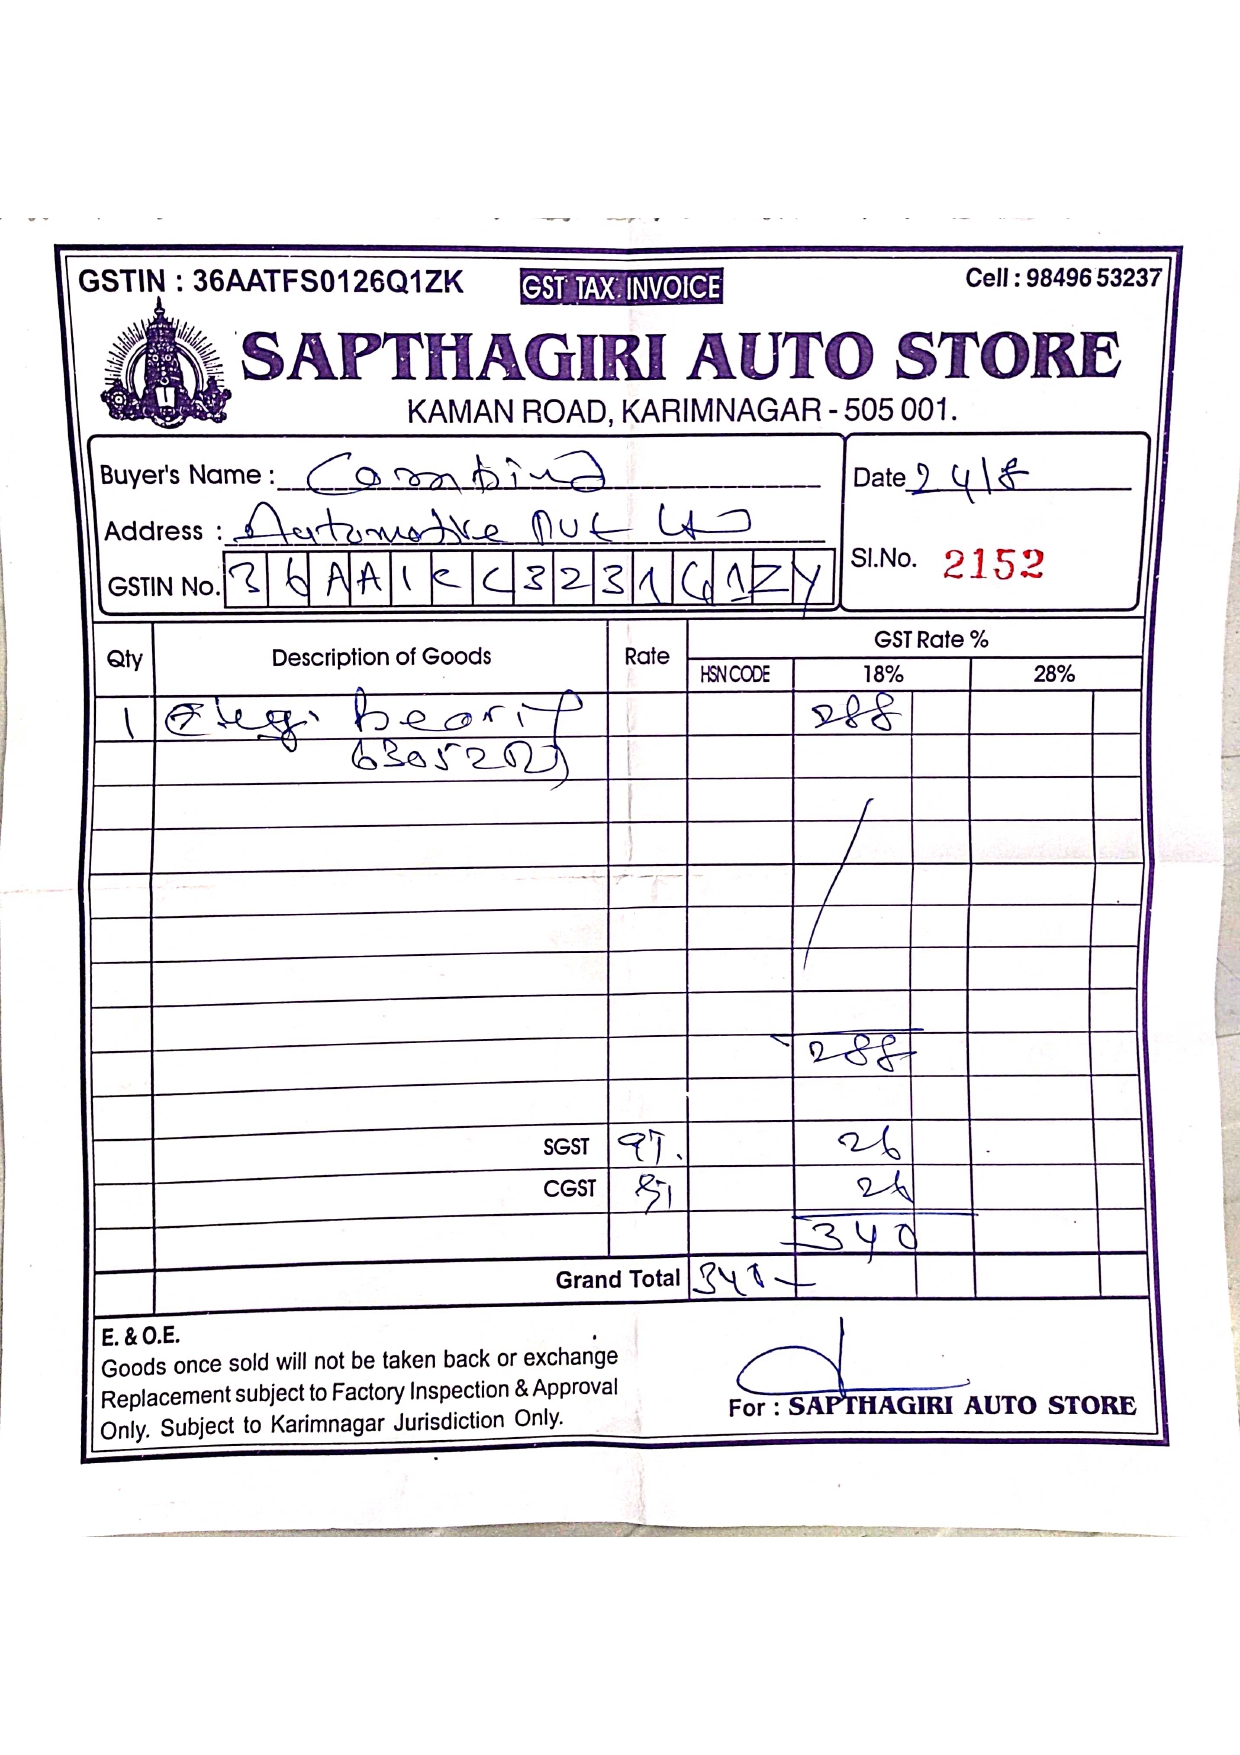 GSTIN : 36AATFS0126Q1ZK GST TAX INVOICE Cell : 98496 53237
SAPTHAGIRI AUTO STORE
KAMAN ROAD, KARIMNAGAR - 505 001.
Buyer's Name : Combind
Date 24/8
Address : Automotive Pvt Ltd
GSTIN No. 36AAKC3231G1ZY
Sl.No. 2152
Qty Description of Goods Rate GST Rate %
HSN CODE 18% 28%
1 288
288
SGST 9% 26
CGST 9% 26
340
Grand Total 340
E. & O.E.
Goods once sold will not be taken back or exchange
Replacement subject to Factory Inspection & Approval
Only. Subject to Karimnagar Jurisdiction Only.
For : SAPTHAGIRI AUTO STORE